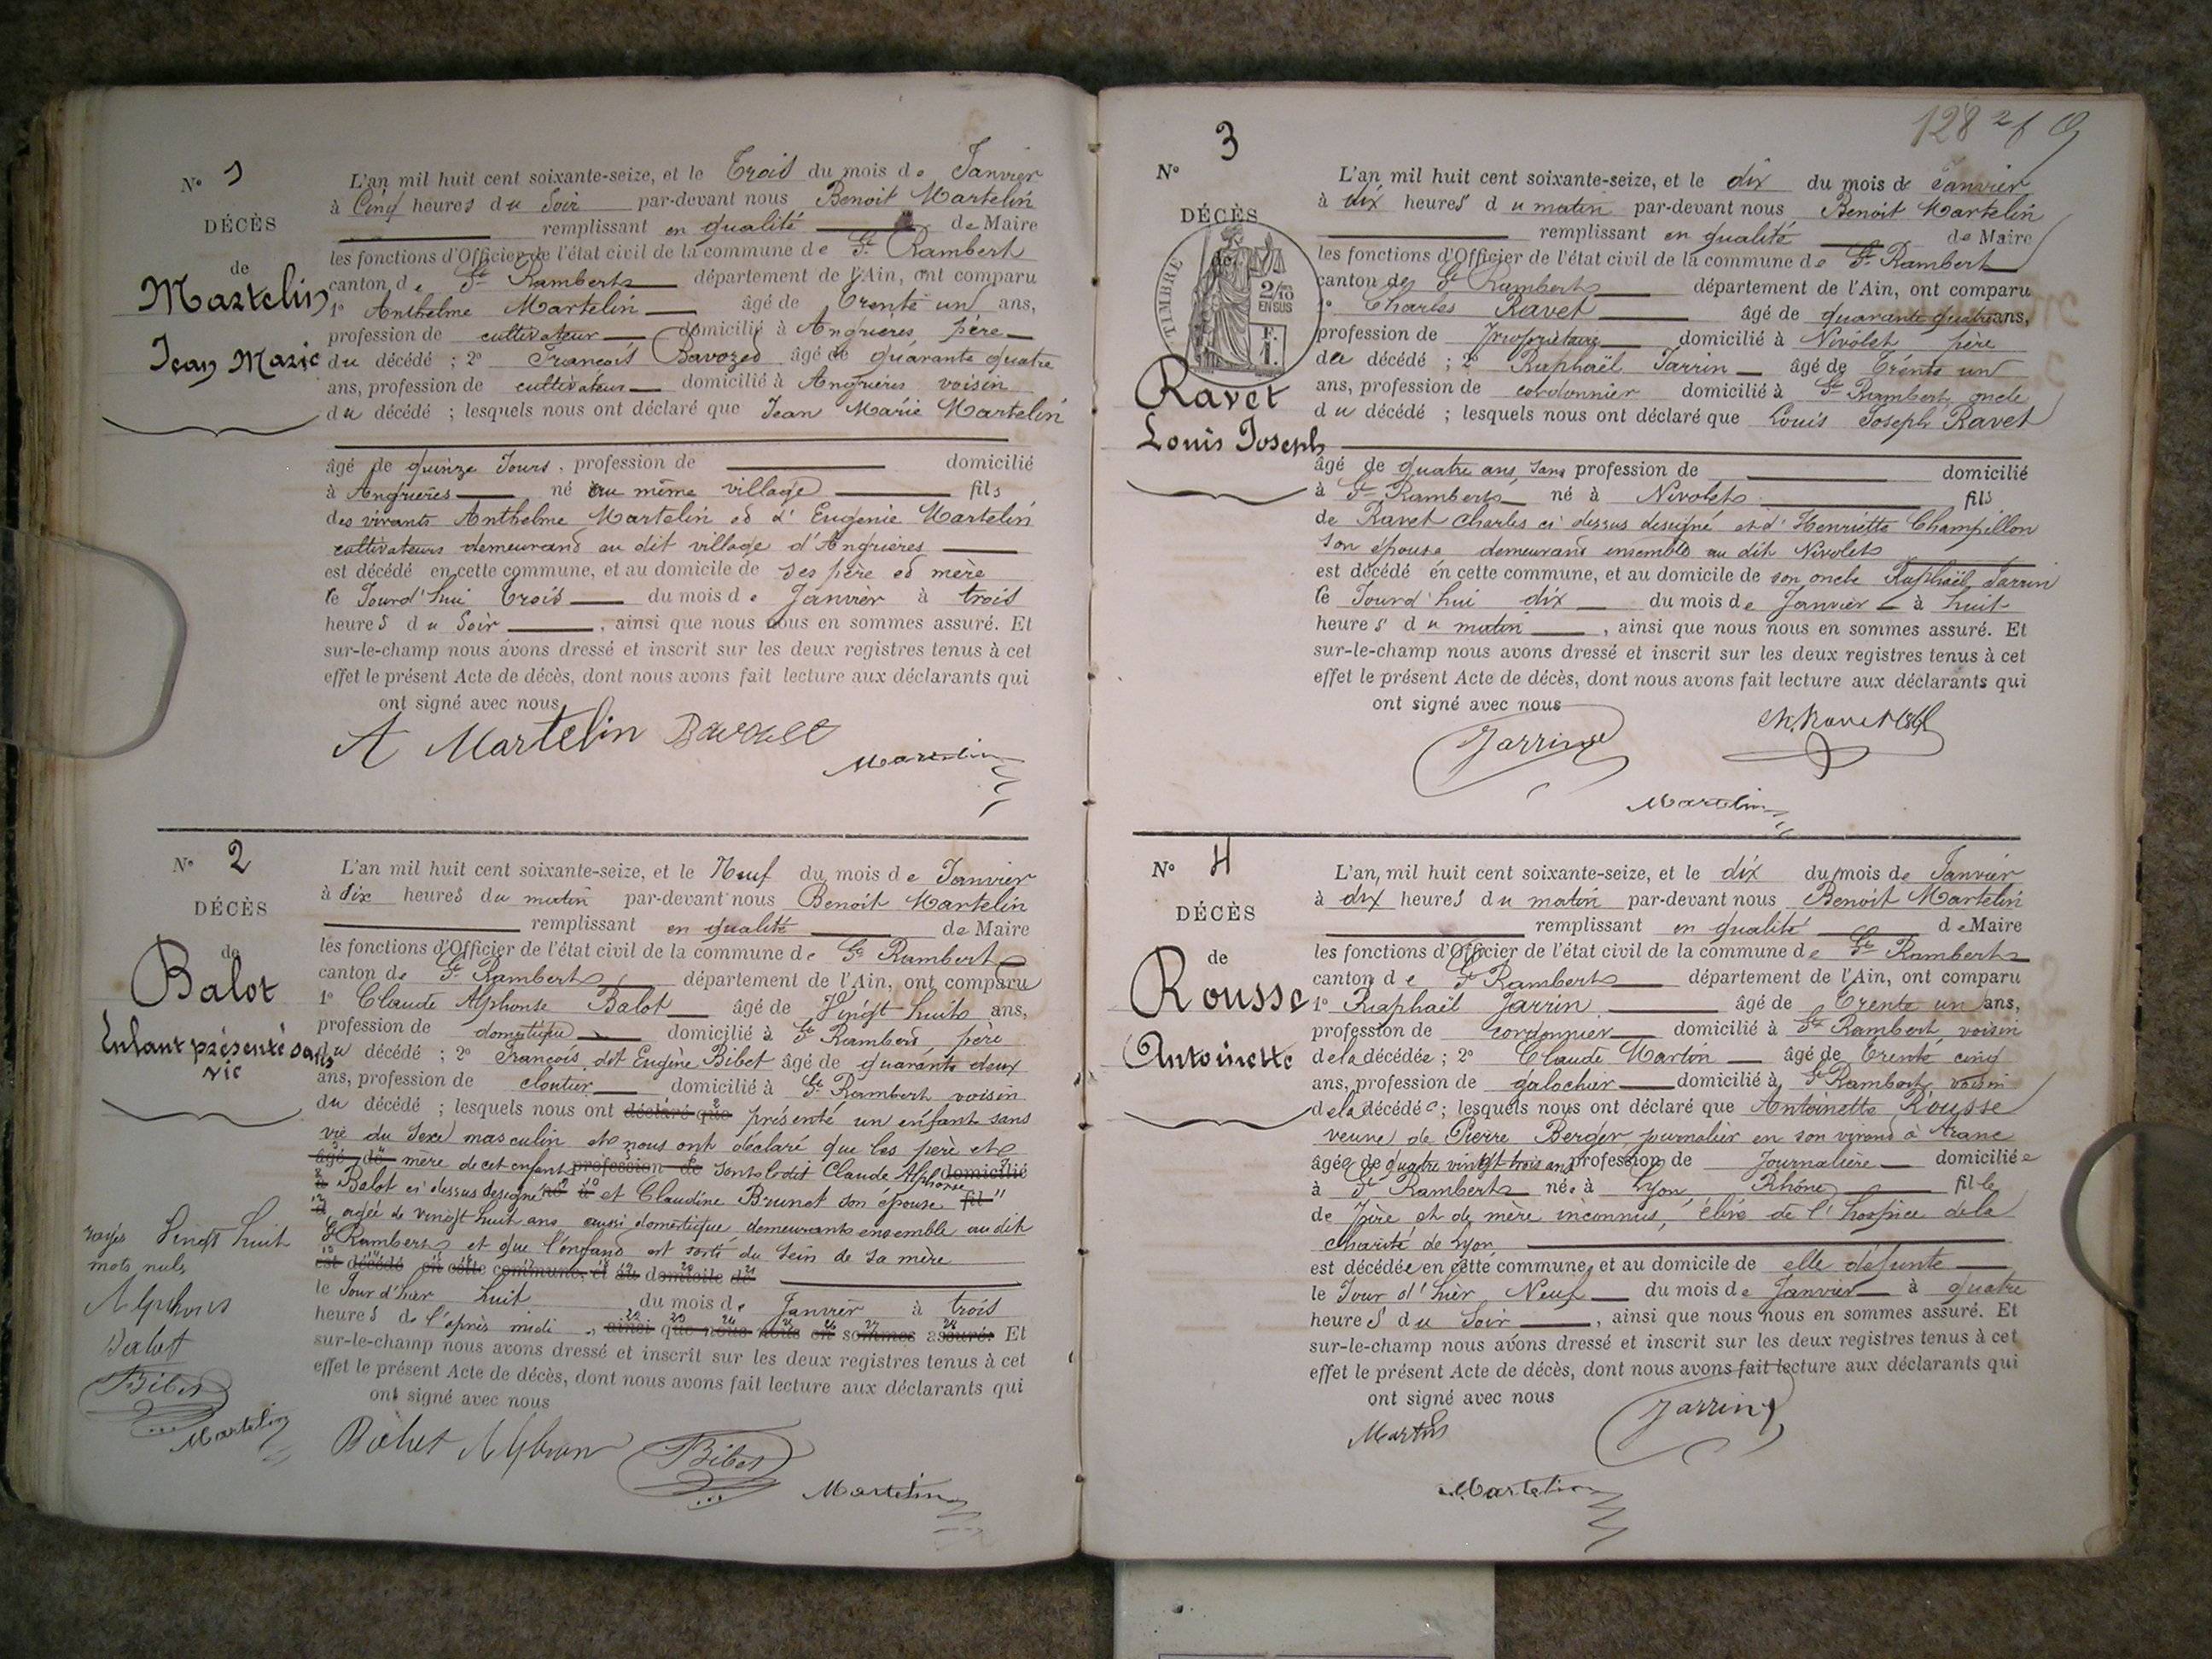 N° 1
DÉCÈS
de
Martelin
Jean Marie
L'an mil huit cent soixante-seize, et le Trois du mois de Janvier
à Cinq heures du Soir par-devant nous Benoit Martelin
remplissant en qualité de Maire
les fonctions d'Officier de l'état civil de la commune de St Rambert
canton de St Rambert département de l'Ain, ont comparu
1° Anthelme Martelin âgé de trente un ans,
profession de cultivateur domicilié à Angrieres père
du décédé ; 2° François Bavozet âgé de quarante quatre
ans, profession de cultivateur domicilié à Angrières voisin
du décédé ; lesquels nous ont déclaré que Jean Marie Martelin
âgé de quinze Jours, profession de domicilié
à Angrières né au même village fils
des vivants Anthelme Martelin et d'Eugenie Martelin
cultivateurs demeurant au dit village d'Angrières
est décédé en cette commune, et au domicile de ses père et mère
le Jourd'hui trois du mois de Janvier à trois
heures du Soir, ainsi que nous nous en sommes assuré. Et
sur-le-champ nous avons dressé et inscrit sur les deux registres tenus à cet
effet le présent Acte de décès, dont nous avons fait lecture aux déclarants qui
ont signé avec nous
A Martelin Bavozet
Martelin
N° 2
DÉCÈS
de
Balot
Enfant présenté sans
vie
L'an mil huit cent soixante-seize, et le Neuf du mois de Janvier
à dix heures du matin par-devant nous Benoit Martelin
remplissant en qualité de Maire
les fonctions d'Officier de l'état civil de la commune de St Rambert
canton de St Rambert département de l'Ain, ont comparu
1° Claude Alphonse Balot âgé de Vingt huit ans,
profession de domestique domicilié à St Rambert, père
du décédé ; 2° François dit Eugène Bibet âgé de quarante deux
ans, profession de cloutier domicilié à St Rambert voisin
du décédé ; lesquels nous ont déclaré que présenté un enfant sans
vie du sexe masculin et nous ont déclaré que les père et
âgé de mère de cet enfant profession de sont le dit Claude Alphonse domicilié
à Balot ci dessus designé né à et Claudine Brunet son épouse fil
d agée de vingt huit ans aussi domestique, demeurants ensemble au dit
St Rambert et que l'enfant est sorti du sein de sa mère
est décédé en cette commune, et au domicile de
le Jour d'hier huit du mois de Janvier à trois
heures de l'après midi, ainsi que nous nous en sommes assuré. Et
sur-le-champ nous avons dressé et inscrit sur les deux registres tenus à cet
effet le présent Acte de décès, dont nous avons fait lecture aux déclarants qui
ont signé avec nous
rayés Vingt huit
mots nuls
Alphons
Balot
Bibet
Martelin
Balot Alphons Bibet
Martelin
128 2f
N° 3
DÉCÈS
de
TIMBRE
2/10
EN SUS
F.
1.
Ravet
Louis Joseph
L'an mil huit cent soixante-seize, et le dix du mois de Janvier
à dix heures du matin par-devant nous Benoit Martelin
remplissant en qualité de Maire
les fonctions d'Officier de l'état civil de la commune de St Rambert
canton de St Rambert département de l'Ain, ont comparu
1° Charles Ravet âgé de quarante quatre ans,
profession de propriétaire domicilié à Nivolet père
du décédé ; 2° Raphaël Jarrin âgé de trente un
ans, profession de cordonnier domicilié à St Rambert, oncle
du décédé ; lesquels nous ont déclaré que Louis Joseph Ravet
âgé de quatre ans, sans profession de domicilié
à St Rambert né à Nivolet fils
de Ravet Charles ci dessus designé et d'Henriette Champillon
son épouse demeurans ensemble au dit Nivolet
est décédé en cette commune, et au domicile de son oncle Raphaël Jarrin
le Jourd'hui dix du mois de Janvier à huit
heures du matin, ainsi que nous nous en sommes assuré. Et
sur-le-champ nous avons dressé et inscrit sur les deux registres tenus à cet
effet le présent Acte de décès, dont nous avons fait lecture aux déclarants qui
ont signé avec nous
Jarrin Ch. Ravet
Martelin
N° 4
DÉCÈS
de
Rousse
Antoinette
L'an mil huit cent soixante-seize, et le dix du mois de Janvier
à dix heures du matin par-devant nous Benoit Martelin
remplissant en qualité de Maire
les fonctions d'Officier de l'état civil de la commune de St Rambert
canton de St Rambert département de l'Ain, ont comparu
1° Raphaël Jarrin âgé de trente un ans,
profession de cordonnier domicilié à St Rambert, voisin
de la décédée ; 2° Claude Martin âgé de trente cinq
ans, profession de galochier domicilié à St Rambert, voisin
de la décédée ; lesquels nous ont déclaré que Antoinette Rousse
veuve de Pierre Berger, journalier en son vivant à Aranc
âgée de quatre vingt trois ans profession de Journalière domiciliée
à St Rambert née à Lyon, Rhône fille
de père et de mère inconnus, élève de l'hospice de la
charité de Lyon
est décédée en cette commune, et au domicile de elle défunte
le Jour d'hier Neuf du mois de Janvier à quatre
heures du Soir, ainsi que nous nous en sommes assuré. Et
sur-le-champ nous avons dressé et inscrit sur les deux registres tenus à cet
effet le présent Acte de décès, dont nous avons fait lecture aux déclarants qui
ont signé avec nous
Martin Jarrin
Martelin